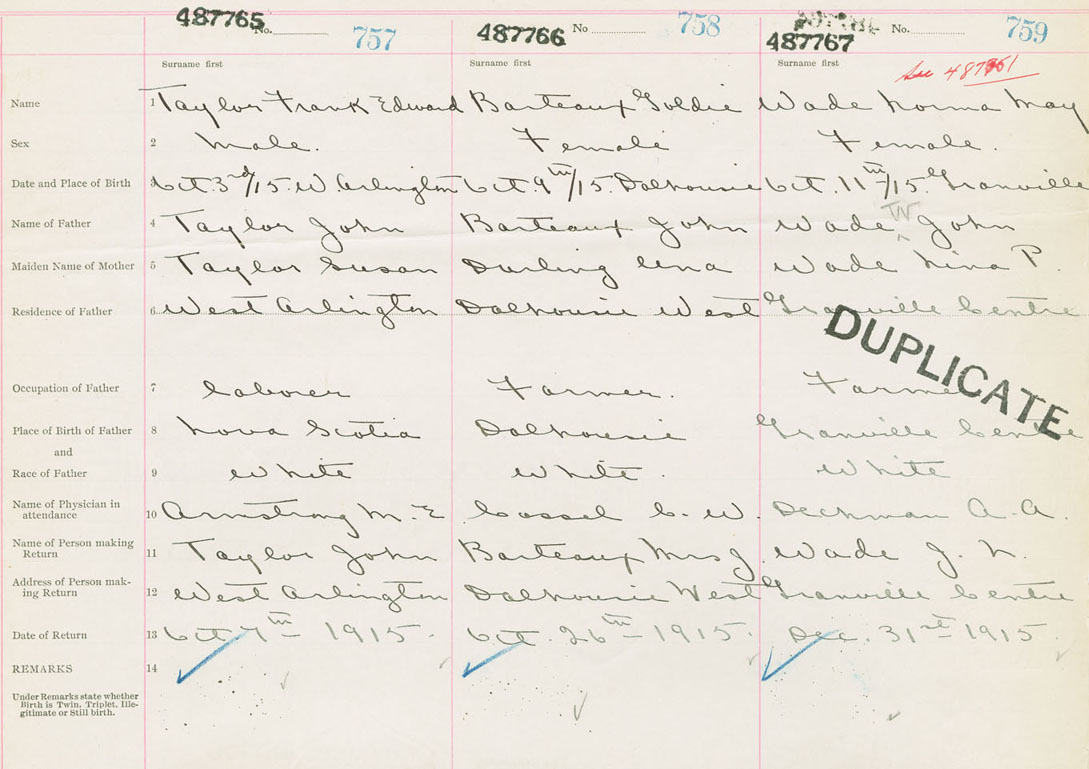 487765 No. 757 487766 No 758 487767 No. 759
Surname first Surname first Surname first See 487761
Name 1 Taylor Frank Edward Barteaux Goldie Wade Norma May
Sex 2 Male. Female Female.
Date and Place of Birth 3 Oct 3rd/15. W. Arlington Oct 9th/15. Dalhousie Oct. 11th/15. Granville
Name of Father 4 Taylor John Barteaux John Wade W John
Maiden Name of Mother 5 Taylor Susan Durling Una Wade Nina P.
Residence of Father 6 West Arlington Dalhousie West Granville Centre
DUPLICATE
Occupation of Father 7 Laborer Farmer. Farmer
Place of Birth of Father 8 Nova Scotia Dalhousie Granville Centre
and
Race of Father 9 White White. White
Name of Physician in
attendance 10 Armstrong M. E Cossel C. W. Deckman A. A.
Name of Person making
Return 11 Taylor John Barteaux Mrs J. Wade J. N.
Address of Person mak-
ing Return 12 West Arlington Dalhousie West Granville Centre
Date of Return 13 Oct 7th 1915. Oct. 26th 1915. Dec. 31st 1915.
REMARKS 14
Under Remarks state whether
Birth is Twin, Triplet, Ille-
gitimate or Still birth.